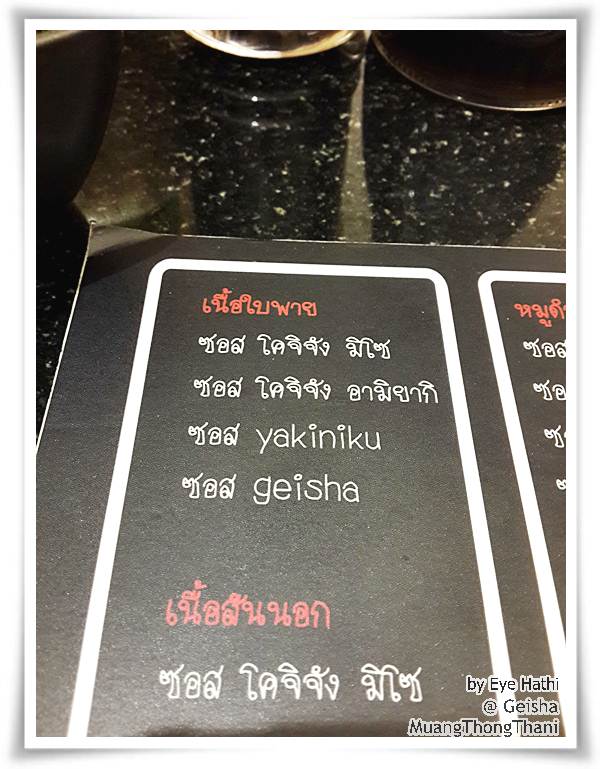 เนื้อใบพาย
ซอส โคจิจัง มิโซ
ซอส โคจิจัง อามิยากิ
ซอส yakiniku
ซอส geisha
เนื้อสันนอก
ซอส โคจิจัง มิโซ
ซอส
ซอส
by Eye Hathi
@ Geisha
MuangThongThani